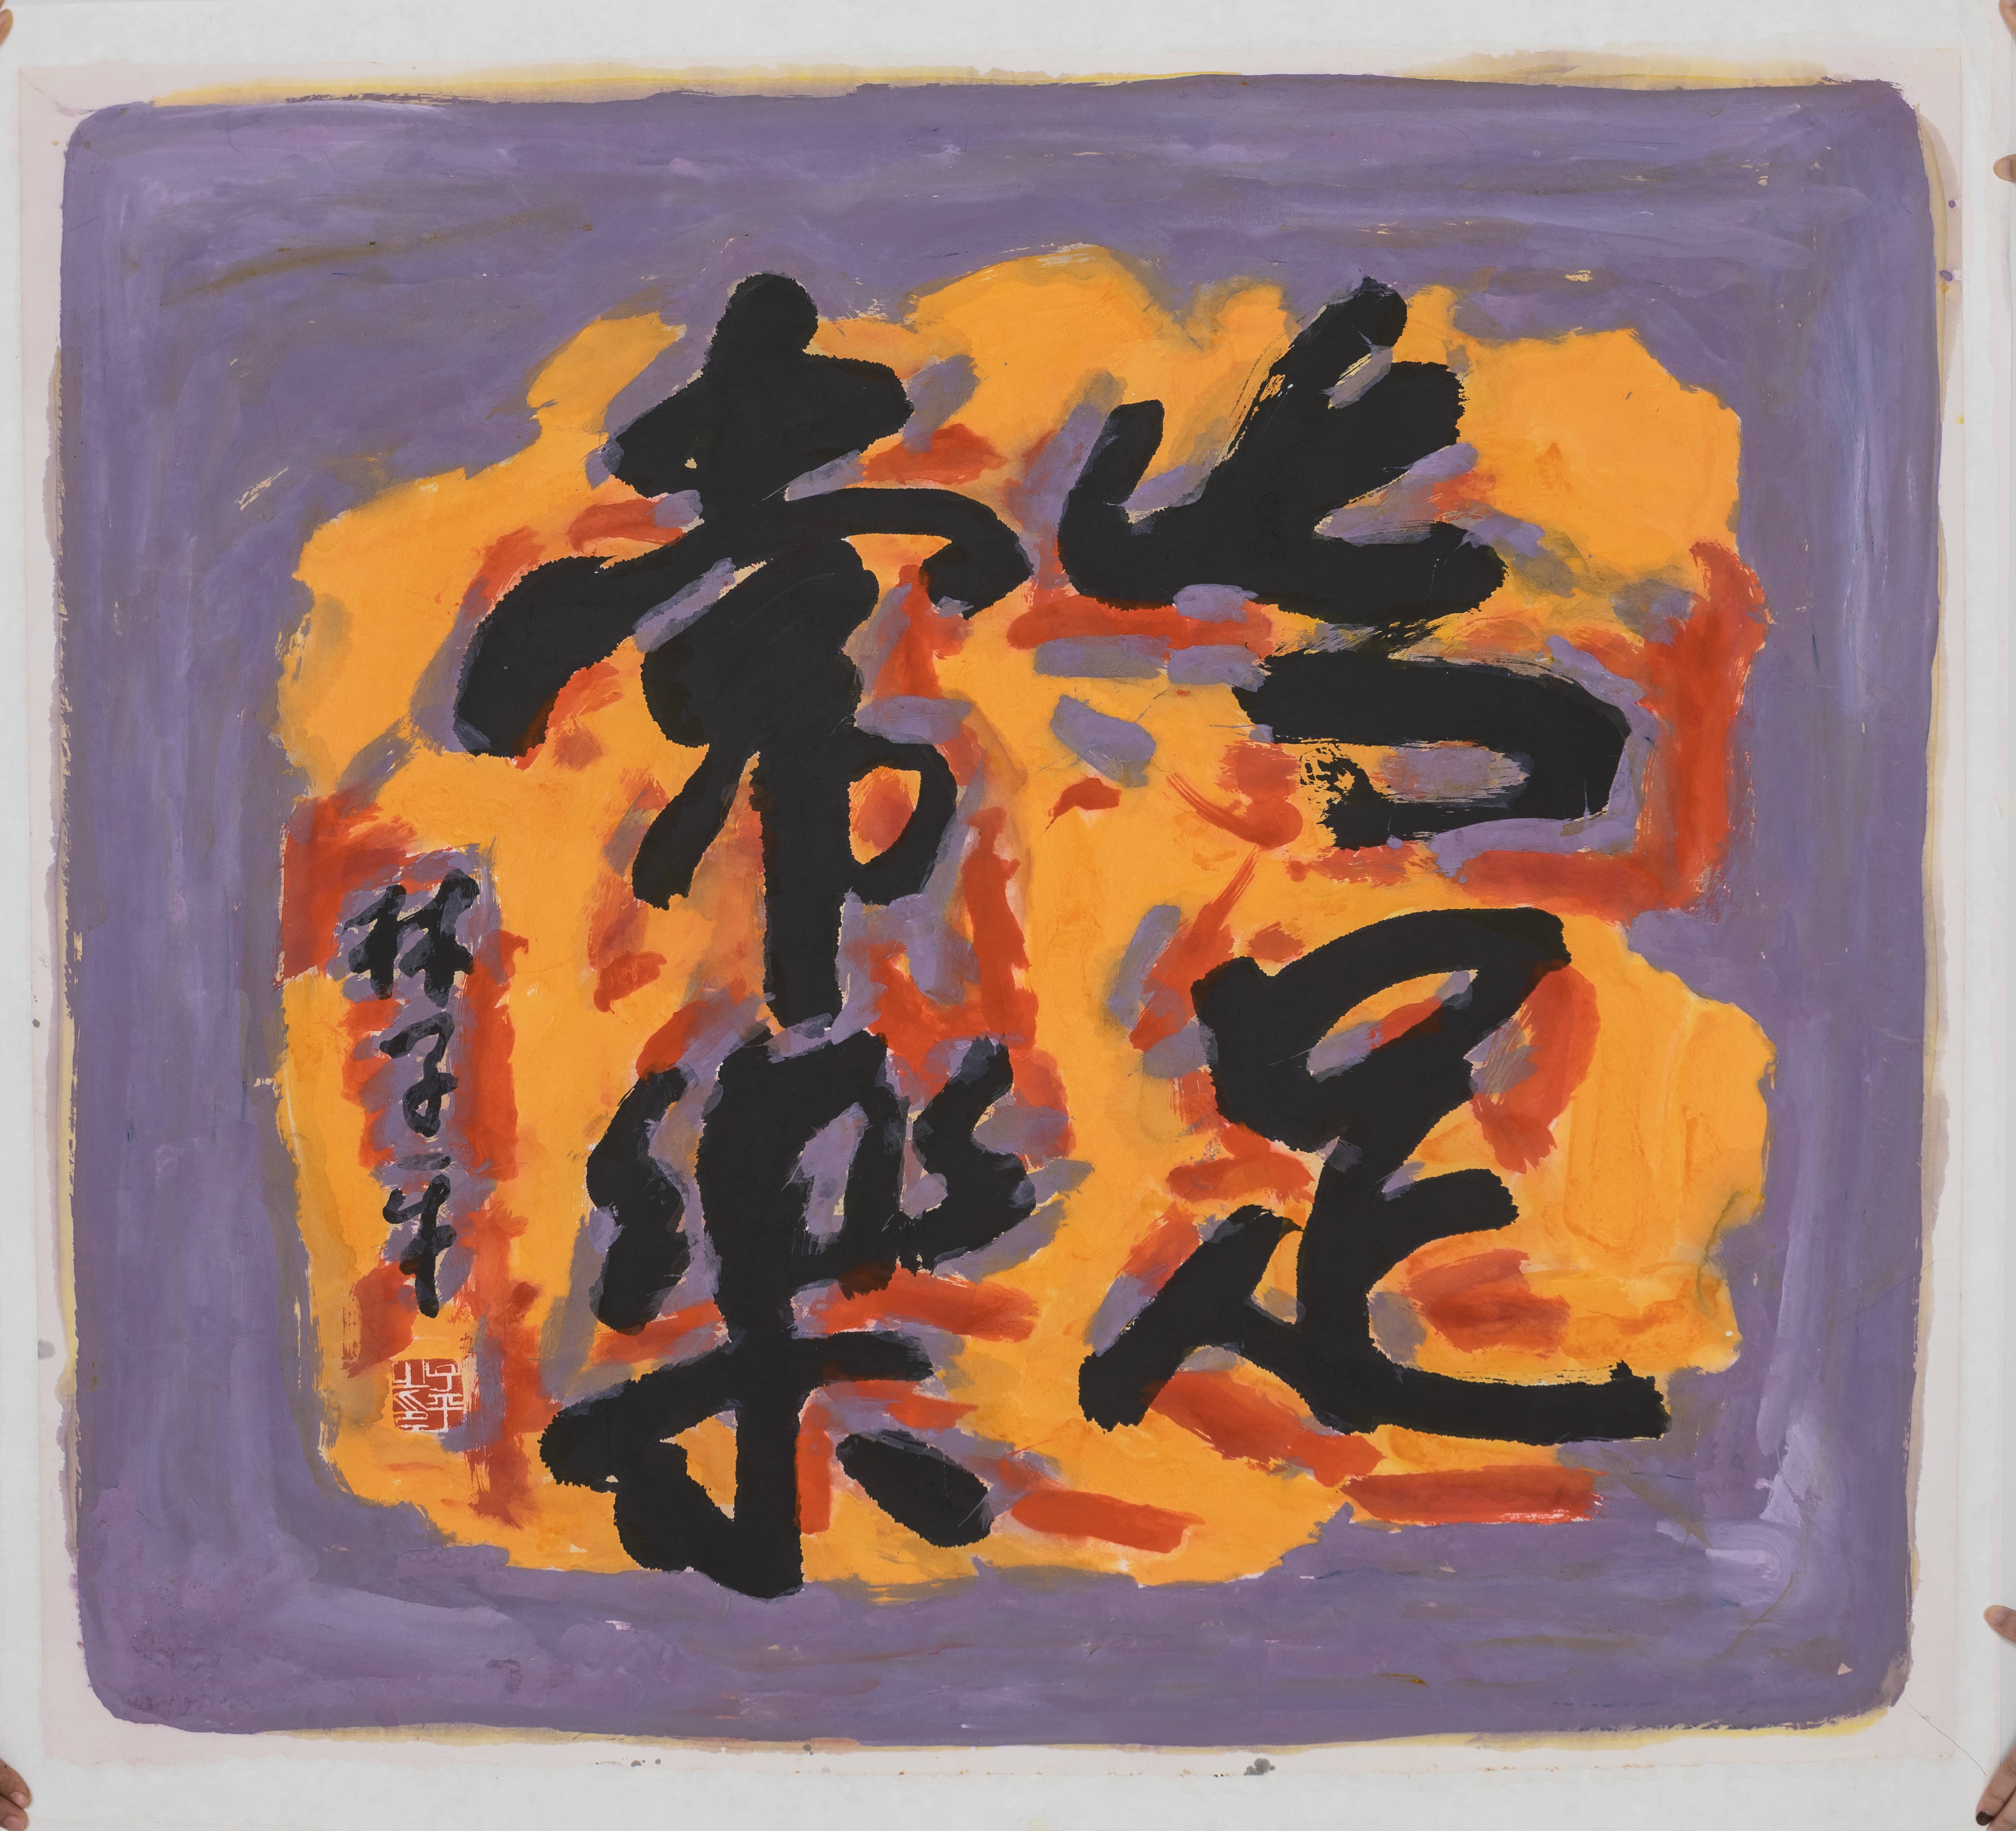 知足
常樂
林子平
子平